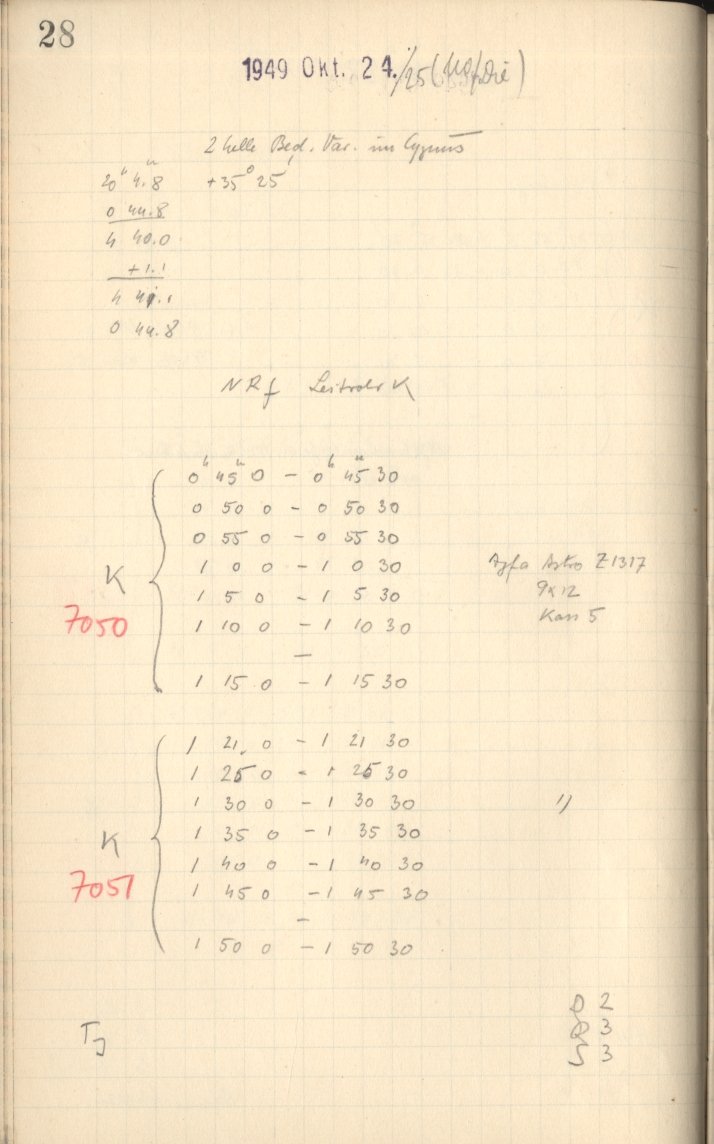 28
1949 Okt. 24./25 (Mo/Die)
2 helle Bed. Var. im Cygnus
20ʰ 4.8ᵐ +35° 25'
0 44.8
4 40.0
+1.1
4 41.1
0 44.8
NRf Leitrohr K
0ʰ 45ᵐ 0 – 0ʰ 45ᵐ 30
0 50 0 – 0 50 30
0 55 0 – 0 55 30
1 0 0 – 1 0 30
Agfa Astro Z1317
K
1 5 0 – 1 5 30
9x12
7050
1 10 0 – 1 10 30
Kass 5
–
1 15 0 – 1 15 30
1 21 0 – 1 21 30
1 25 0 – 1 25 30
1 30 0 – 1 30 30
"
1 35 0 – 1 35 30
K
1 40 0 – 1 40 30
7051
1 45 0 – 1 45 30
–
1 50 0 – 1 50 30
D 2
Q 3
S 3